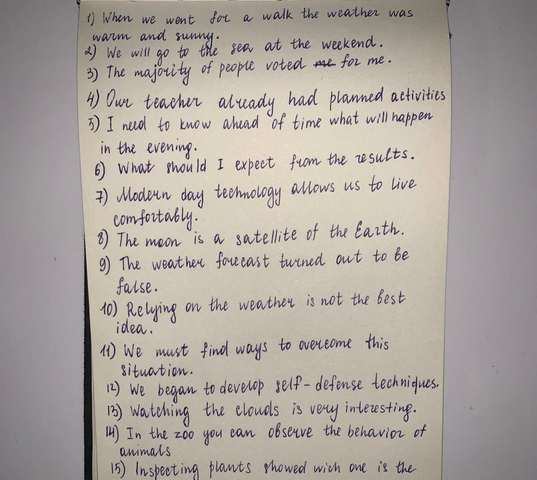 1) When we went for a walk the weather was
warm and sunny.
2) We will go to the sea at the weekend.
3) The majority of people voted me for me.
4) Our teacher already had planned activities
5) I need to know ahead of time what will happen
in the evening.
6) What should I expect from the results.
7) Modern day technology allows us to live
comfortably.
8) The moon is a satellite of the Earth.
9) The weather forecast turned out to be
false.
10) Relying on the weather is not the best
idea.
11) We must find ways to overcome this
situation.
12) We began to develop self-defense techniques.
13) Watching the clouds is very interesting.
14) In the zoo you can observe the behavior of
animals
15) Inspecting plants showed wich one is the